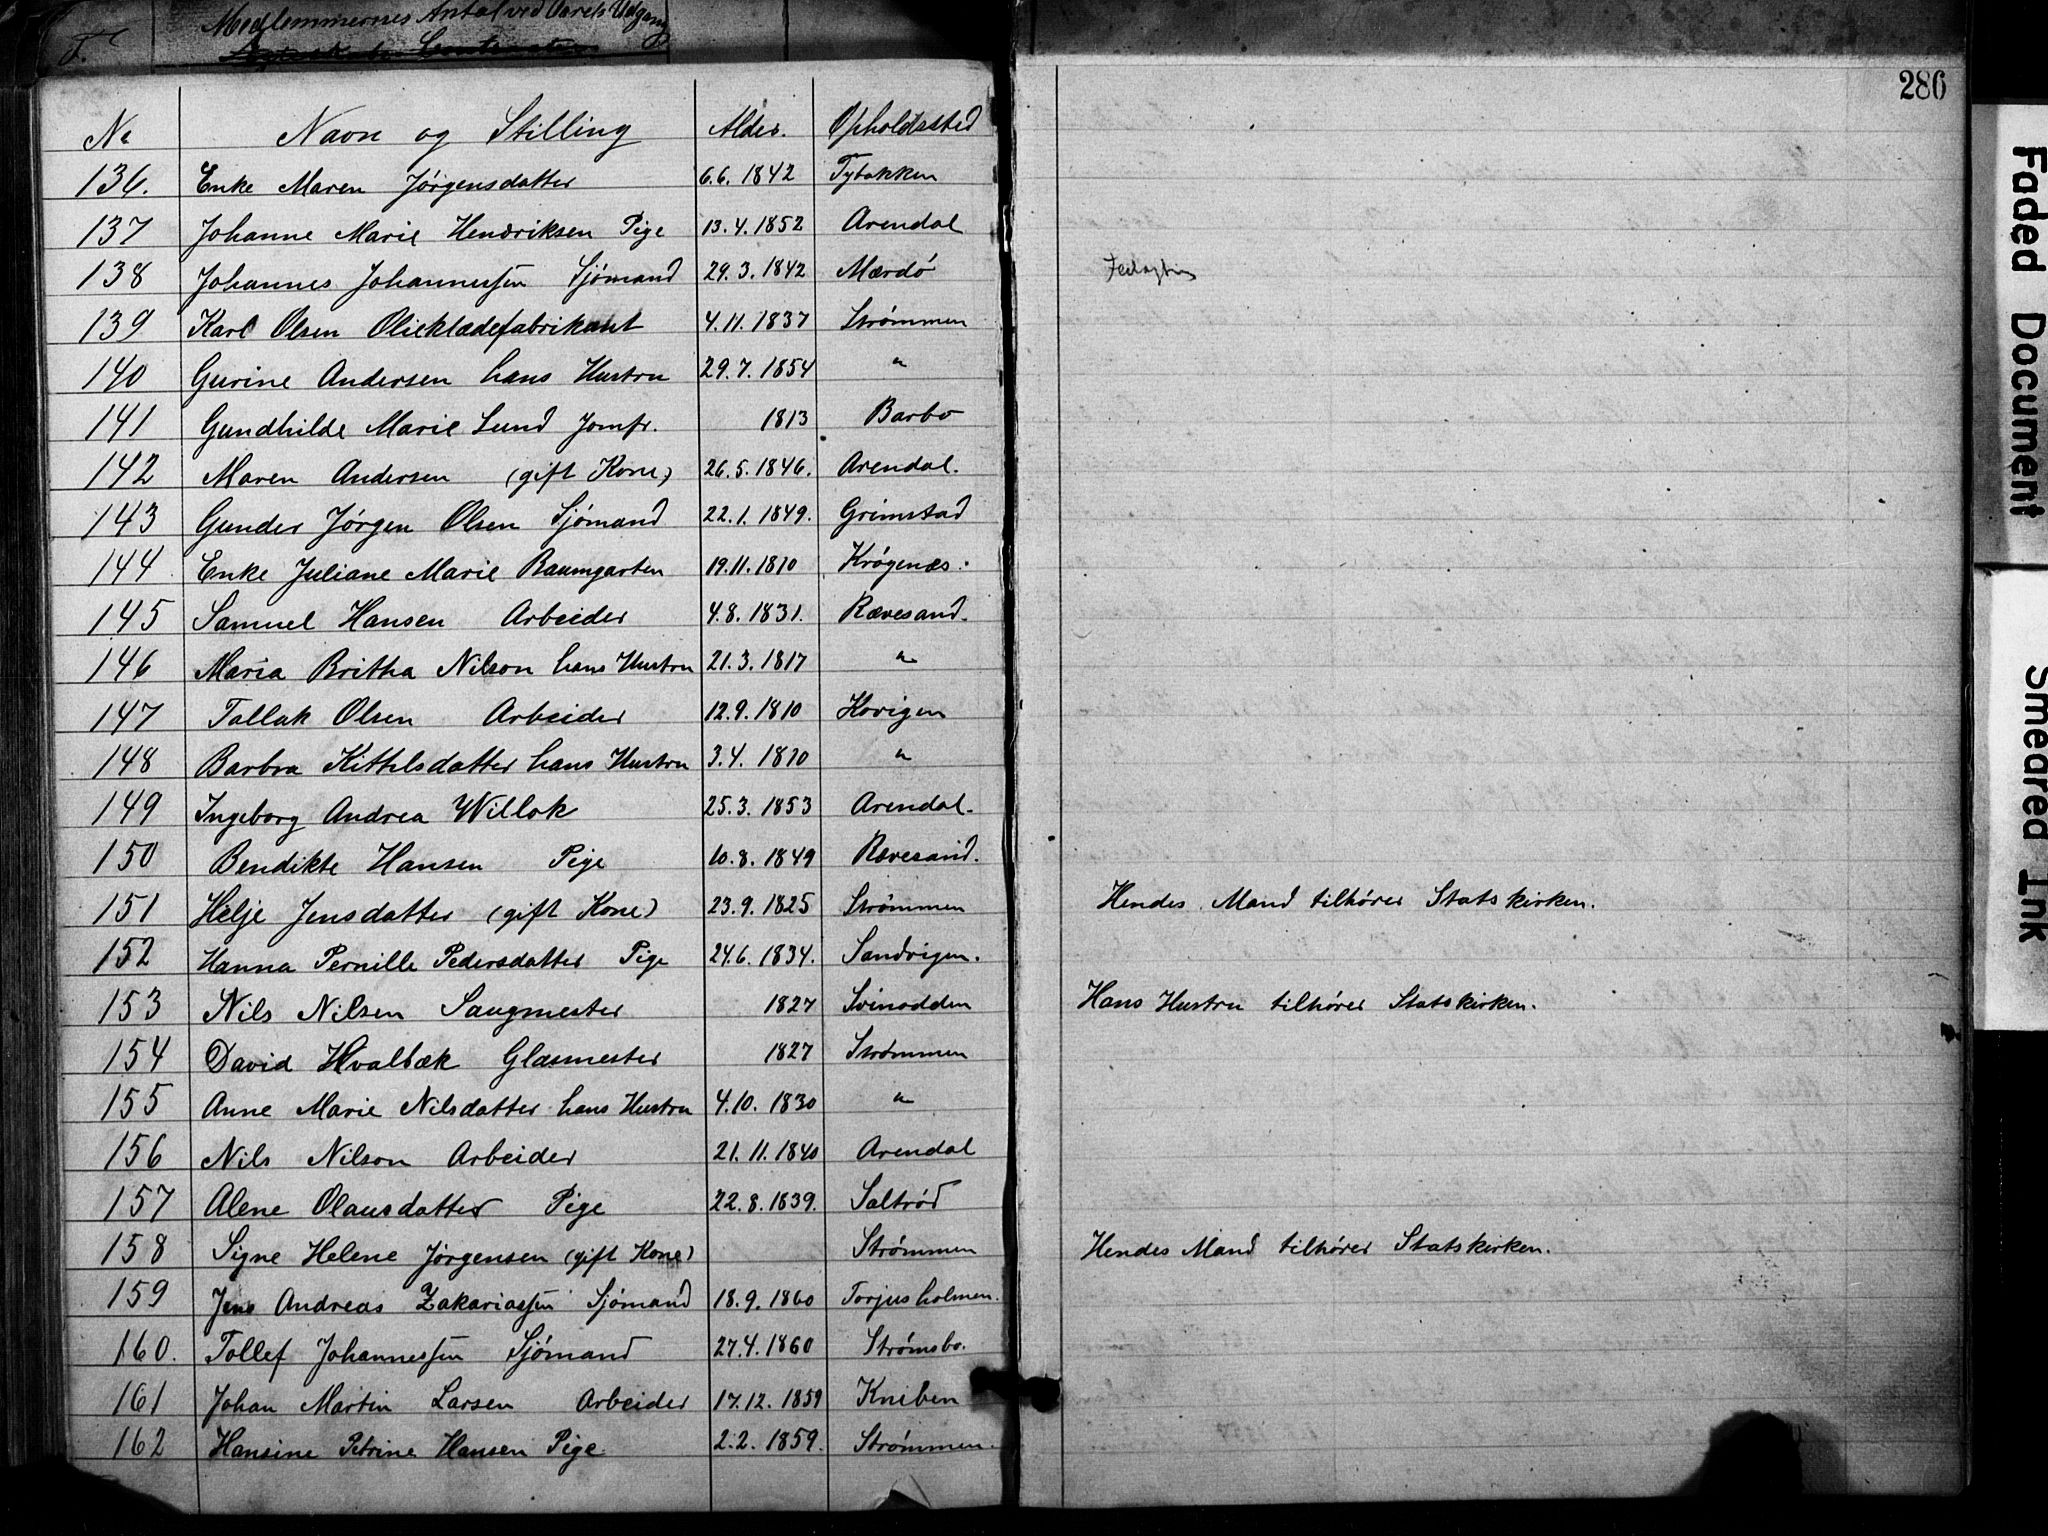 F. Medlemmernes Antal ved Aarets Udgang
286
No Navn og Stilling Alder. Opholdssted
136. Enke Maren Jørgensdatter 6.6. 1842 Tybakken
137 Johanne Marie Hendriksen Pige 13.4.1852 Arendal
138 Johannes Johannessen Sjømand 29.3.1842 Mærdø
139 Karl Olsen Olieklædefabrikant 4.11.1837 Strømmen
140 Gurine Andersen hans Hustru 29.7.1854 "
141 Gundhilde Marie Lund Jomfr. 1813 Barbo
142 Maren Andersen (gift Kone) 26.5.1846. Arendal.
143 Gunder Jørgen Olsen Sjømand 22.1.1849. Grimstad
144 Enke Juliane Marie Baumgarten 19.11.1810 Krøgenæs.
145 Samuel Hansen Arbeider 4.8.1831. Rævesand.
146 Maria Britha Nilson hans Hustru 21.3.1817 "
147 Tallak Olsen Arbeider 12.9.1810 Hovigen
148 Barbra Kittilsdatter hans Hustru 3.4. 1810 "
149 Ingeborg Andrea Willok 25.3.1853 Arendal.
150 Bendikte Hansen Pige 10.8.1849 Rævesand.
151 Helje Jensdatter (gift Kone) 23.9.1825 Strømmen Hendes Mand tilhører Statskirken.
152 Hanna Pernille Pedersdatter Pige 24.6.1834. Sandvigen.
153 Nils Nilsen Saugmester 1827 Svinodden Hans Hustru tilhører Statskirken.
154 David Hvalbæk Glasmester 1827 Strømmen
155 Anne Marie Nilsdatter hans Hustru 4.10.1830 "
156 Nils Nilson Arbeider 21.11.1840 Arendal
157 Alene Olausdatter Pige 22.8.1839. Saltrød
158 Signe Helene Jørgensen (gift Kone) Strømmen Hendes Mand tilhører Statskirken.
159 Jens Andreas Zakariassen Sjømand 18.9.1860 Torjusholmen.
160. Tollef Johannessen Sjømand 27.4.1860 Strømsbo.
161 Johan Martin Larsen Arbeider 17.12.1859 Kniben
162 Hansine Petrine Hansen Pige 2.2.1859. Strømmen.
Faded Document
Smeared Ink